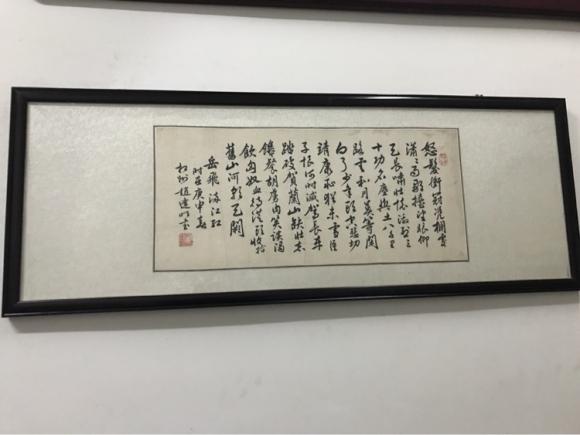 怒髮衝冠凭欄處
瀟瀟雨歇擡望眼仰
天長嘯壯懷激烈三
十功名塵與土八千里
路雲和月莫等閑
白了少年頭空悲切
靖康恥猶未雪臣
子恨何時滅駕長車
踏破賀蘭山缺壯志
饑餐胡虜肉笑談渴
飲匈奴血待從頭收拾
舊山河朝天闕
岳飛滿江紅
時在庚申春